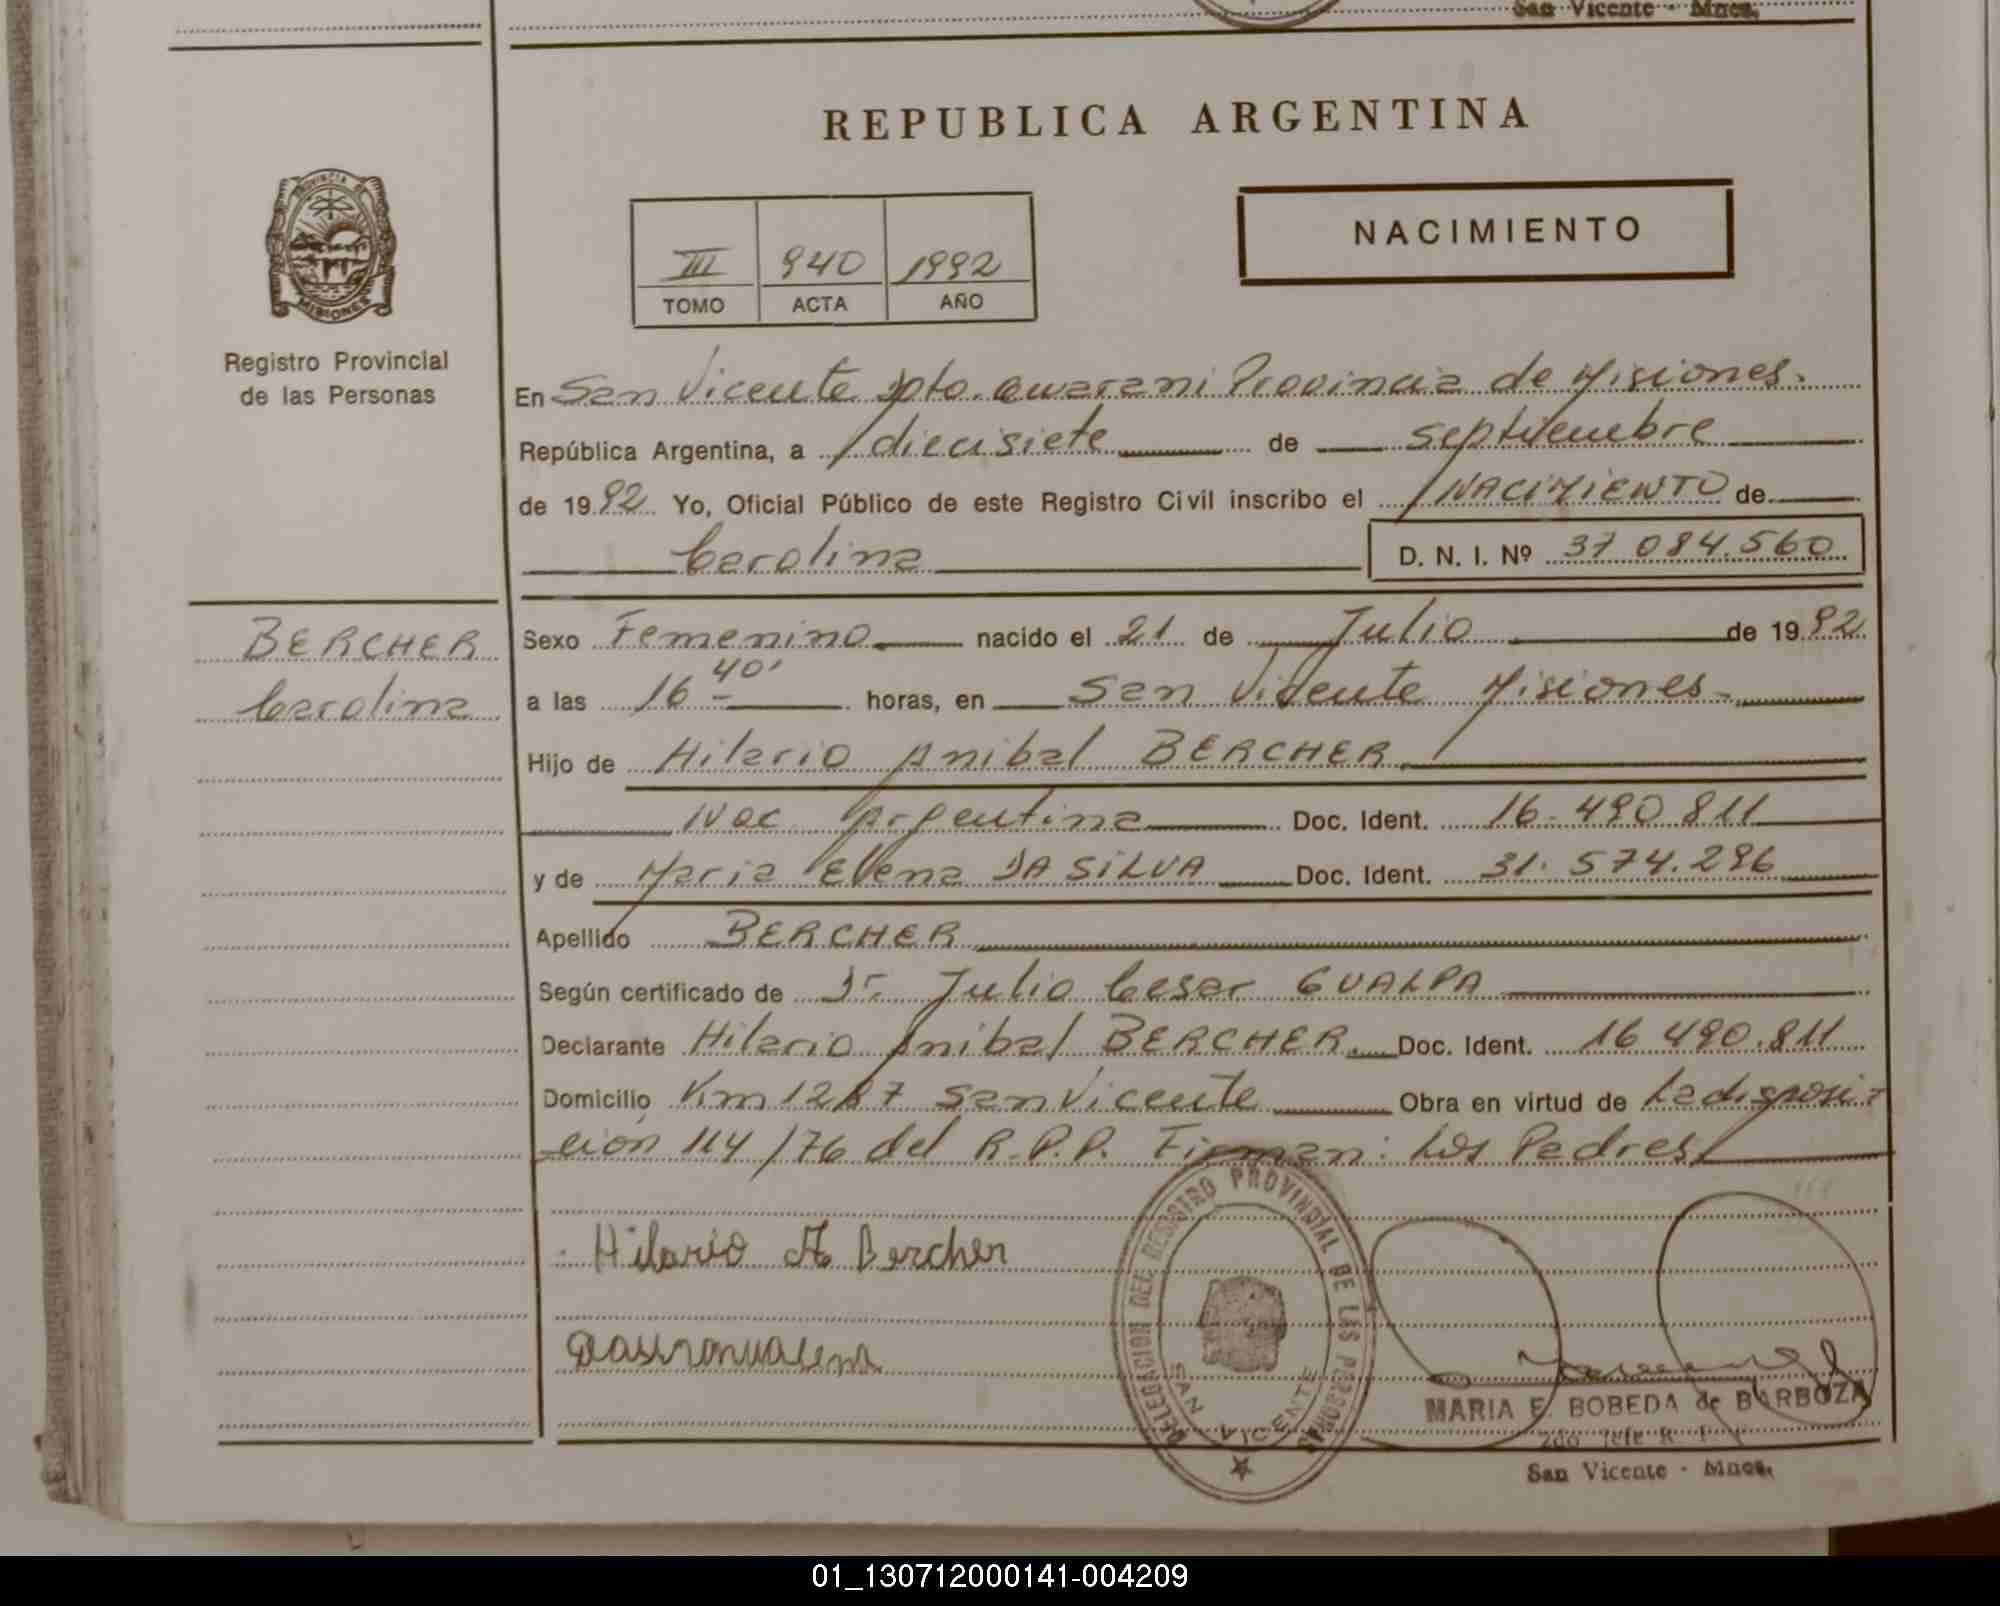 San Vicente - Mnes.
REPUBLICA ARGENTINA
NACIMIENTO
III 940 1992
TOMO ACTA AÑO
PROVINCIA DE
MISIONES
Registro Provincial
de las Personas
En San Vicente Dpto. Guarani Provincia de Misiones.
República Argentina, a diecisiete de septiembre
de 1992 Yo, Oficial Público de este Registro Civil inscribo el NACIMIENTO de
Carolina D. N. I. Nº 37 084.560
BERCHER
Carolina
Sexo Femenino nacido el 21 de Julio de 1992
a las 16 40' horas, en San Vicente Misiones
Hijo de Hilario Anibal BERCHER
Nac. Argentina Doc. Ident. 16.490.811
y de Maria Elena DA SILVA Doc. Ident. 31.574.296
Apellido BERCHER
Según certificado de Dr. Julio Cesar GUALPA
Declarante Hilario Anibal BERCHER. Doc. Ident. 16 490.811
Domicilio Km 1287 San Vicente Obra en virtud de La disposi-
ción 114/76 del R.P.P. Firman: Los Padres
Hilario A Bercher
DELEGACION DEL REGISTRO PROVINCIAL DE LAS PERSONAS
SAN VICENTE
MARIA E. BOBEDA de BARBOZA
2do Jefe R. P.
San Vicente - Mnes.
01_130712000141-004209